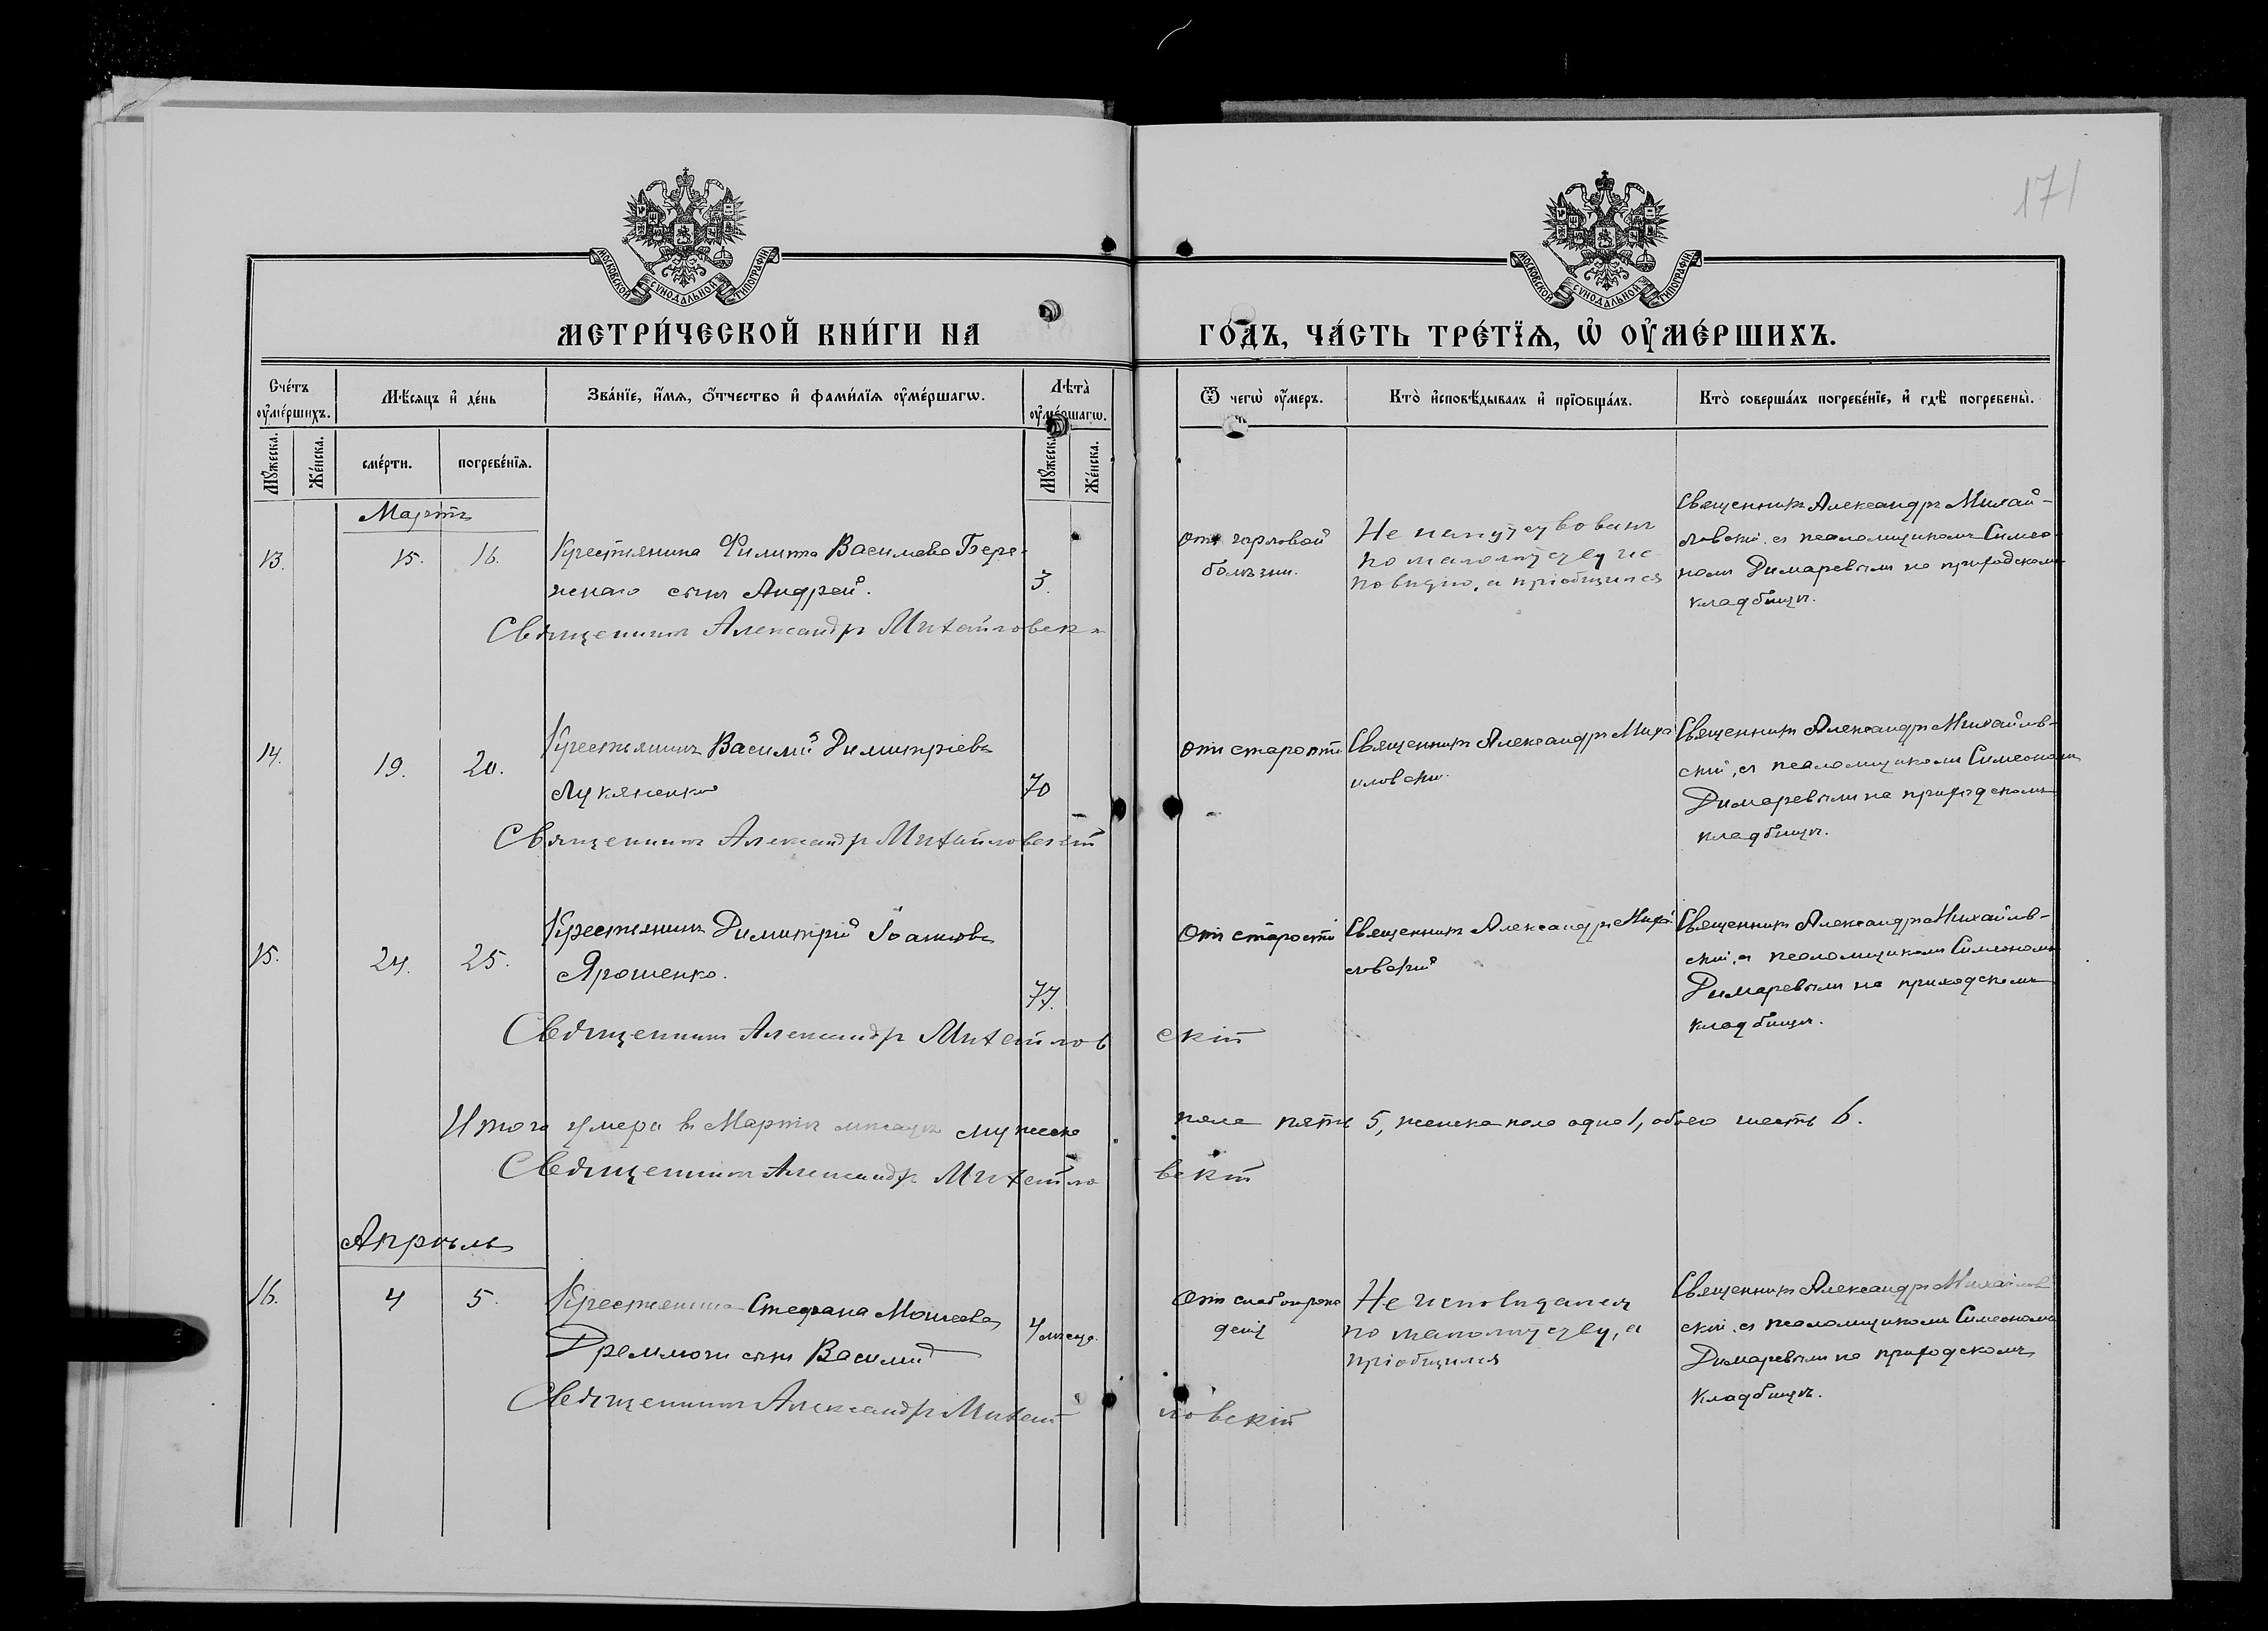 171
МОСКОВСКОЙ СѴНОДАЛЬНОЙ ТИПОГРАФІИ
МОСКОВСКОЙ СѴНОДАЛЬНОЙ ТИПОГРАФІИ
МЕТРИ́ЧЕСКОЙ КНИ́ГИ НА
ГО́ДЪ, ЧА́СТЬ ТРЕ́ТЇѦ, Ѡ҆ ОУ҆МЕ́РШИХЪ.
Сче́тъ оу҆ме́ршихъ.
Мѣ́сяцъ и҆ де́нь
Зва́нїе, и҆́мѧ, ѻ҆́тчество и҆ фами́лїѧ оу҆ме́ршагѡ.
Лѣта̀ оу҆ме́ршагѡ.
Ѿ чегѡ̀ оу҆́меръ.
Кто̀ и҆сповѣ́дывалъ и҆ прїѻбща́лъ.
Кто̀ соверша́лъ погребе́нїе, и҆ гдѣ̀ погребены̀.
Мꙋ́жеска.
Же́нска.
сме́рти.
погребе́нїѧ.
Мꙋ́жеска.
Же́нска.
Мартъ
13. 15. 16. Крестьянина Филиппа Василіева Бере-
жнаго сынъ Андрей. 3.
Священникъ Александръ Михайловскій
Отъ горловой
болѣзни.
Не напутствованъ
по малолѣтству ис
повидію, а пріобщился
Священникъ Александръ Михай-
ловскій съ псаломщикомъ Симео-
номъ Димаревымъ на приходскомъ
кладбищѣ.
14. 19. 20. Крестьянинъ Василій Димитріевъ
Лукяненко 70
Священникъ Александръ Михайловскій
Отъ старости
Священникъ Александръ Михай
ловскій
Священникъ Александръ Михайлов-
скій, съ псаломщикомъ Симеономъ
Димаревымъ на приходскомъ
кладбищѣ.
15. 24. 25. Крестьянинъ Димитрій Іоанновъ
Ярошенко. 77.
Священникъ Александръ Михайловскій
Отъ старости
Священникъ Александръ Михай
ловскій
Священникъ Александръ Михайлов-
скій, съ псаломщикомъ Симеономъ
Димаревымъ на приходскомъ
кладбищѣ.
Итого умерло въ Мартѣ мѣсяцѣ мужеска пола пять 5, женска пола одна 1, обоего шесть 6.
Священникъ Александръ Михайловскій
Апрѣль
16. 4 5. Крестьянина Стефана Моисеева
Дремлюги сынъ Василій 4 мѣсяц.
Священникъ Александръ Михайловскій
Отъ слабо рож
денія
Не исповидался
по малолѣтству, а
пріобщился
Священникъ Александръ Михайлов
скій съ псаломщикомъ Симеономъ
Димаревымъ на приходскомъ
кладбищѣ.